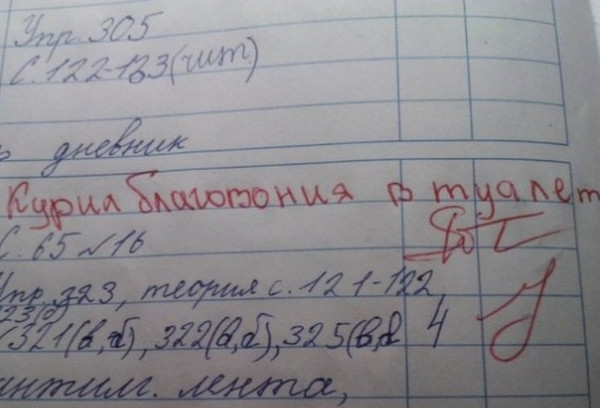 Упр. 305
С. 122-123(чит)
дневник
Курил благовония в туалет
С. 65 №16
Упр. 323, теория с. 121-122
321(в,б), 322(а,б), 325(в,д 4
лента,